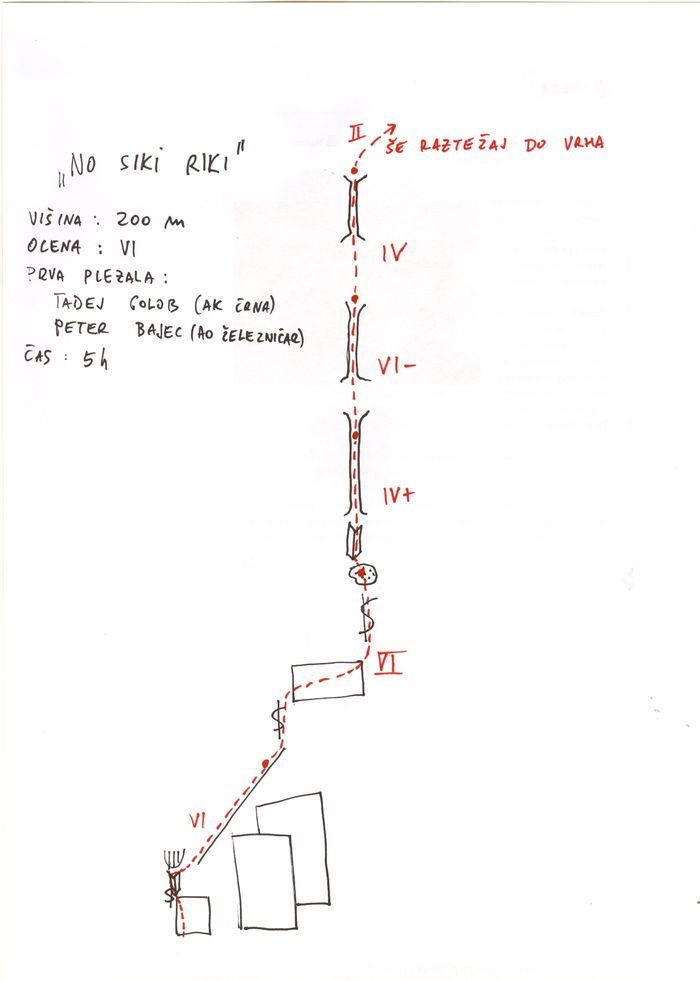 II
ŠE RAZTEŽAJ DO VRHA
„NO SIKI RIKI"
VIŠINA : 200 m
OCENA : VI
PRVA PLEZALA :
TADEJ GOLOB (AK ČRNA)
PETER BAJEC (AO ŽELEZNIČAR)
ČAS : 5h
IV
VI-
IV+
VI
VI